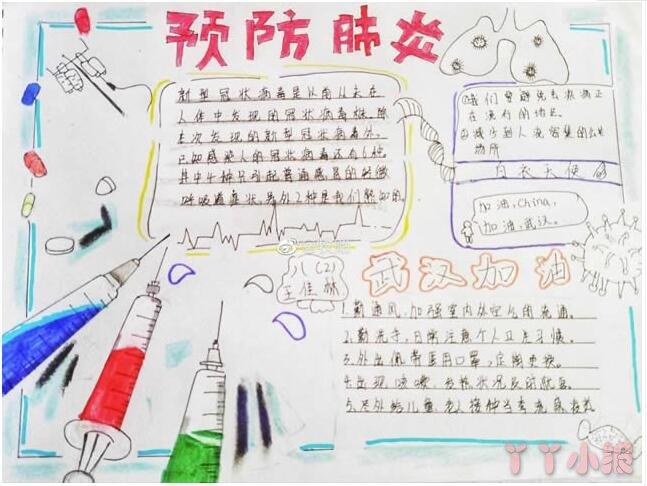 预防肺炎
新型冠状病毒是从前从未在
人体中发现的冠状病毒株。除
本次发现的新型冠状病毒外，
已知感染人的冠状病毒还有6种。
其中4种只引起普通感冒的
呼吸道症状，另外2种是我们熟知的。
①我们要避免去疾病正
在流行的地区。
②减少到人流密集的公共
场所
白衣天使
加油，China，
加油，武汉。
八（2）
王佳林
武汉加油
1.勤通风，加强室内外空气的流通。
2.勤洗手，日常注意个人卫生习惯。
3.外出佩带医用口罩，定期更换。
4.出现咳嗽，发热状况及时就医。
5.尽外的儿童，老人接种
丫丫小报